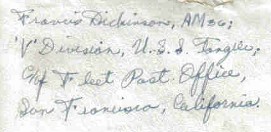 Francis Dickinson, AM3c;
'V' Division, U.S.S. Tangier;
c/o Fleet Post Office,
San Francisco, California.